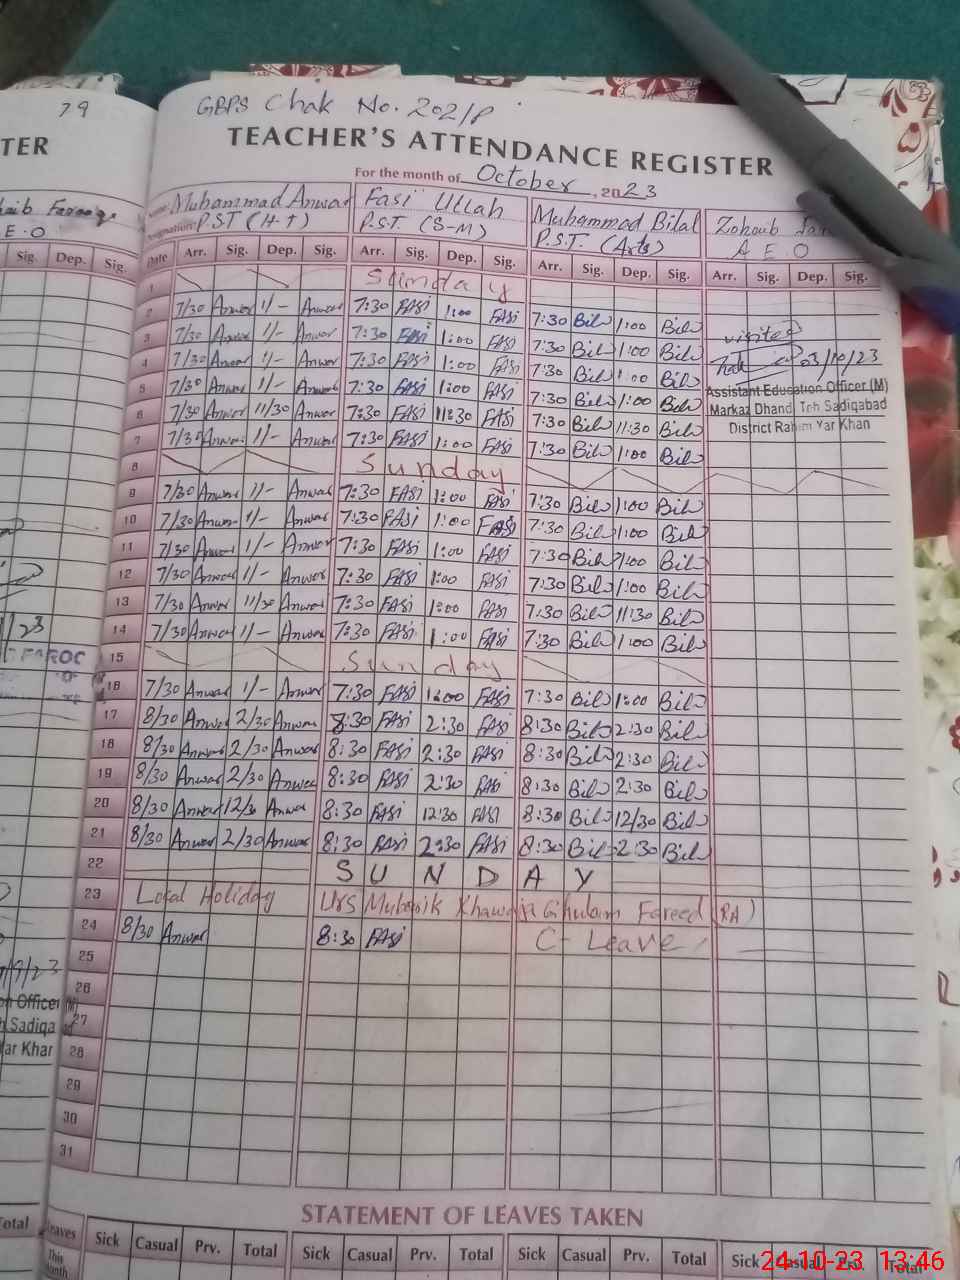 79
GBPS Chak No. 202/P
TER
TEACHER'S ATTENDANCE REGISTER
For the month of October, 2023
Name: Muhammad Anwar Fasii Ullah Muhammad Bilal Zohaib
Designation: P.S.T (H-T) P.S.T. (S-M) P.S.T. (Arts) A.E.O
Sig. Dep. Sig. Date Arr. Sig. Dep. Sig. Arr. Sig. Dep. Sig. Arr. Sig. Dep. Sig. Arr. Sig. Dep. Sig.
1 Sunday
2 7/30 Anwar 1/- Anwar 7:30 FASi 1:00 FASi 7:30 Bil 1:00 Bil
3 7/30 Anwar 1/- Anwar 7:30 FASi 1:00 FASi 7:30 Bil 1:00 Bil visited
4 7/30 Anwar 1/- Anwar 7:30 FASi 1:00 FASi 7:30 Bil 1:00 Bil 03/10/23
5 7/30 Anwar 1/- Anwar 7:30 FASi 1:00 FASi 7:30 Bil 1:00 Bil Assistant Education Officer (M)
6 7/30 Anwar 11/30 Anwar 7:30 FASi 11:30 FASi 7:30 Bil 11:30 Bil Markaz Dhandi Teh Sadiqabad
7 7/30 Anwar 1/- Anwar 7:30 FASi 1:00 FASi 7:30 Bil 1:00 Bil District Rahim Yar Khan
8 Sunday
9 7/30 Anwar 1/- Anwar 7:30 FASi 1:00 FASi 7:30 Bil 1:00 Bil
10 7/30 Anwar 1/- Anwar 7:30 FASi 1:00 FASi 7:30 Bil 1:00 Bil
11 7/30 Anwar 1/- Anwar 7:30 FASi 1:00 FASi 7:30 Bil 1:00 Bil
12 7/30 Anwar 1/- Anwar 7:30 FASi 1:00 FASi 7:30 Bil 1:00 Bil
13 7/30 Anwar 11/30 Anwar 7:30 FASi 1:00 FASi 7:30 Bil 11:30 Bil
14 7/30 Anwar 1/- Anwar 7:30 FASi 1:00 FASi 7:30 Bil 1:00 Bil
15 Sunday
16 7/30 Anwar 1/- Anwar 7:30 FASi 1:00 FASi 7:30 Bil 1:00 Bil
17 8/30 Anwar 2/30 Anwar 8:30 FASi 2:30 FASi 8:30 Bil 2:30 Bil
18 8/30 Anwar 2/30 Anwar 8:30 FASi 2:30 FASi 8:30 Bil 2:30 Bil
19 8/30 Anwar 2/30 Anwar 8:30 FASi 2:30 FASi 8:30 Bil 2:30 Bil
20 8/30 Anwar 12/30 Anwar 8:30 FASi 12:30 FASI 8:30 Bil 12/30 Bil
21 8/30 Anwar 2/30 Anwar 8:30 FASi 2:30 FASi 8:30 Bil 2:30 Bil
22 SUNDAY
23 Local Holiday Urs Mubarik Khawaja Ghulam Fareed (RA)
24 8/30 Anwar 8:30 FASi C-Leave
25
26
27
28
29
30
31
STATEMENT OF LEAVES TAKEN
Total Leaves Sick Casual Prv. Total Sick Casual Prv. Total Sick Casual Prv. Total Sick Casual Prv. Total
This Month
24-10-23 13:46